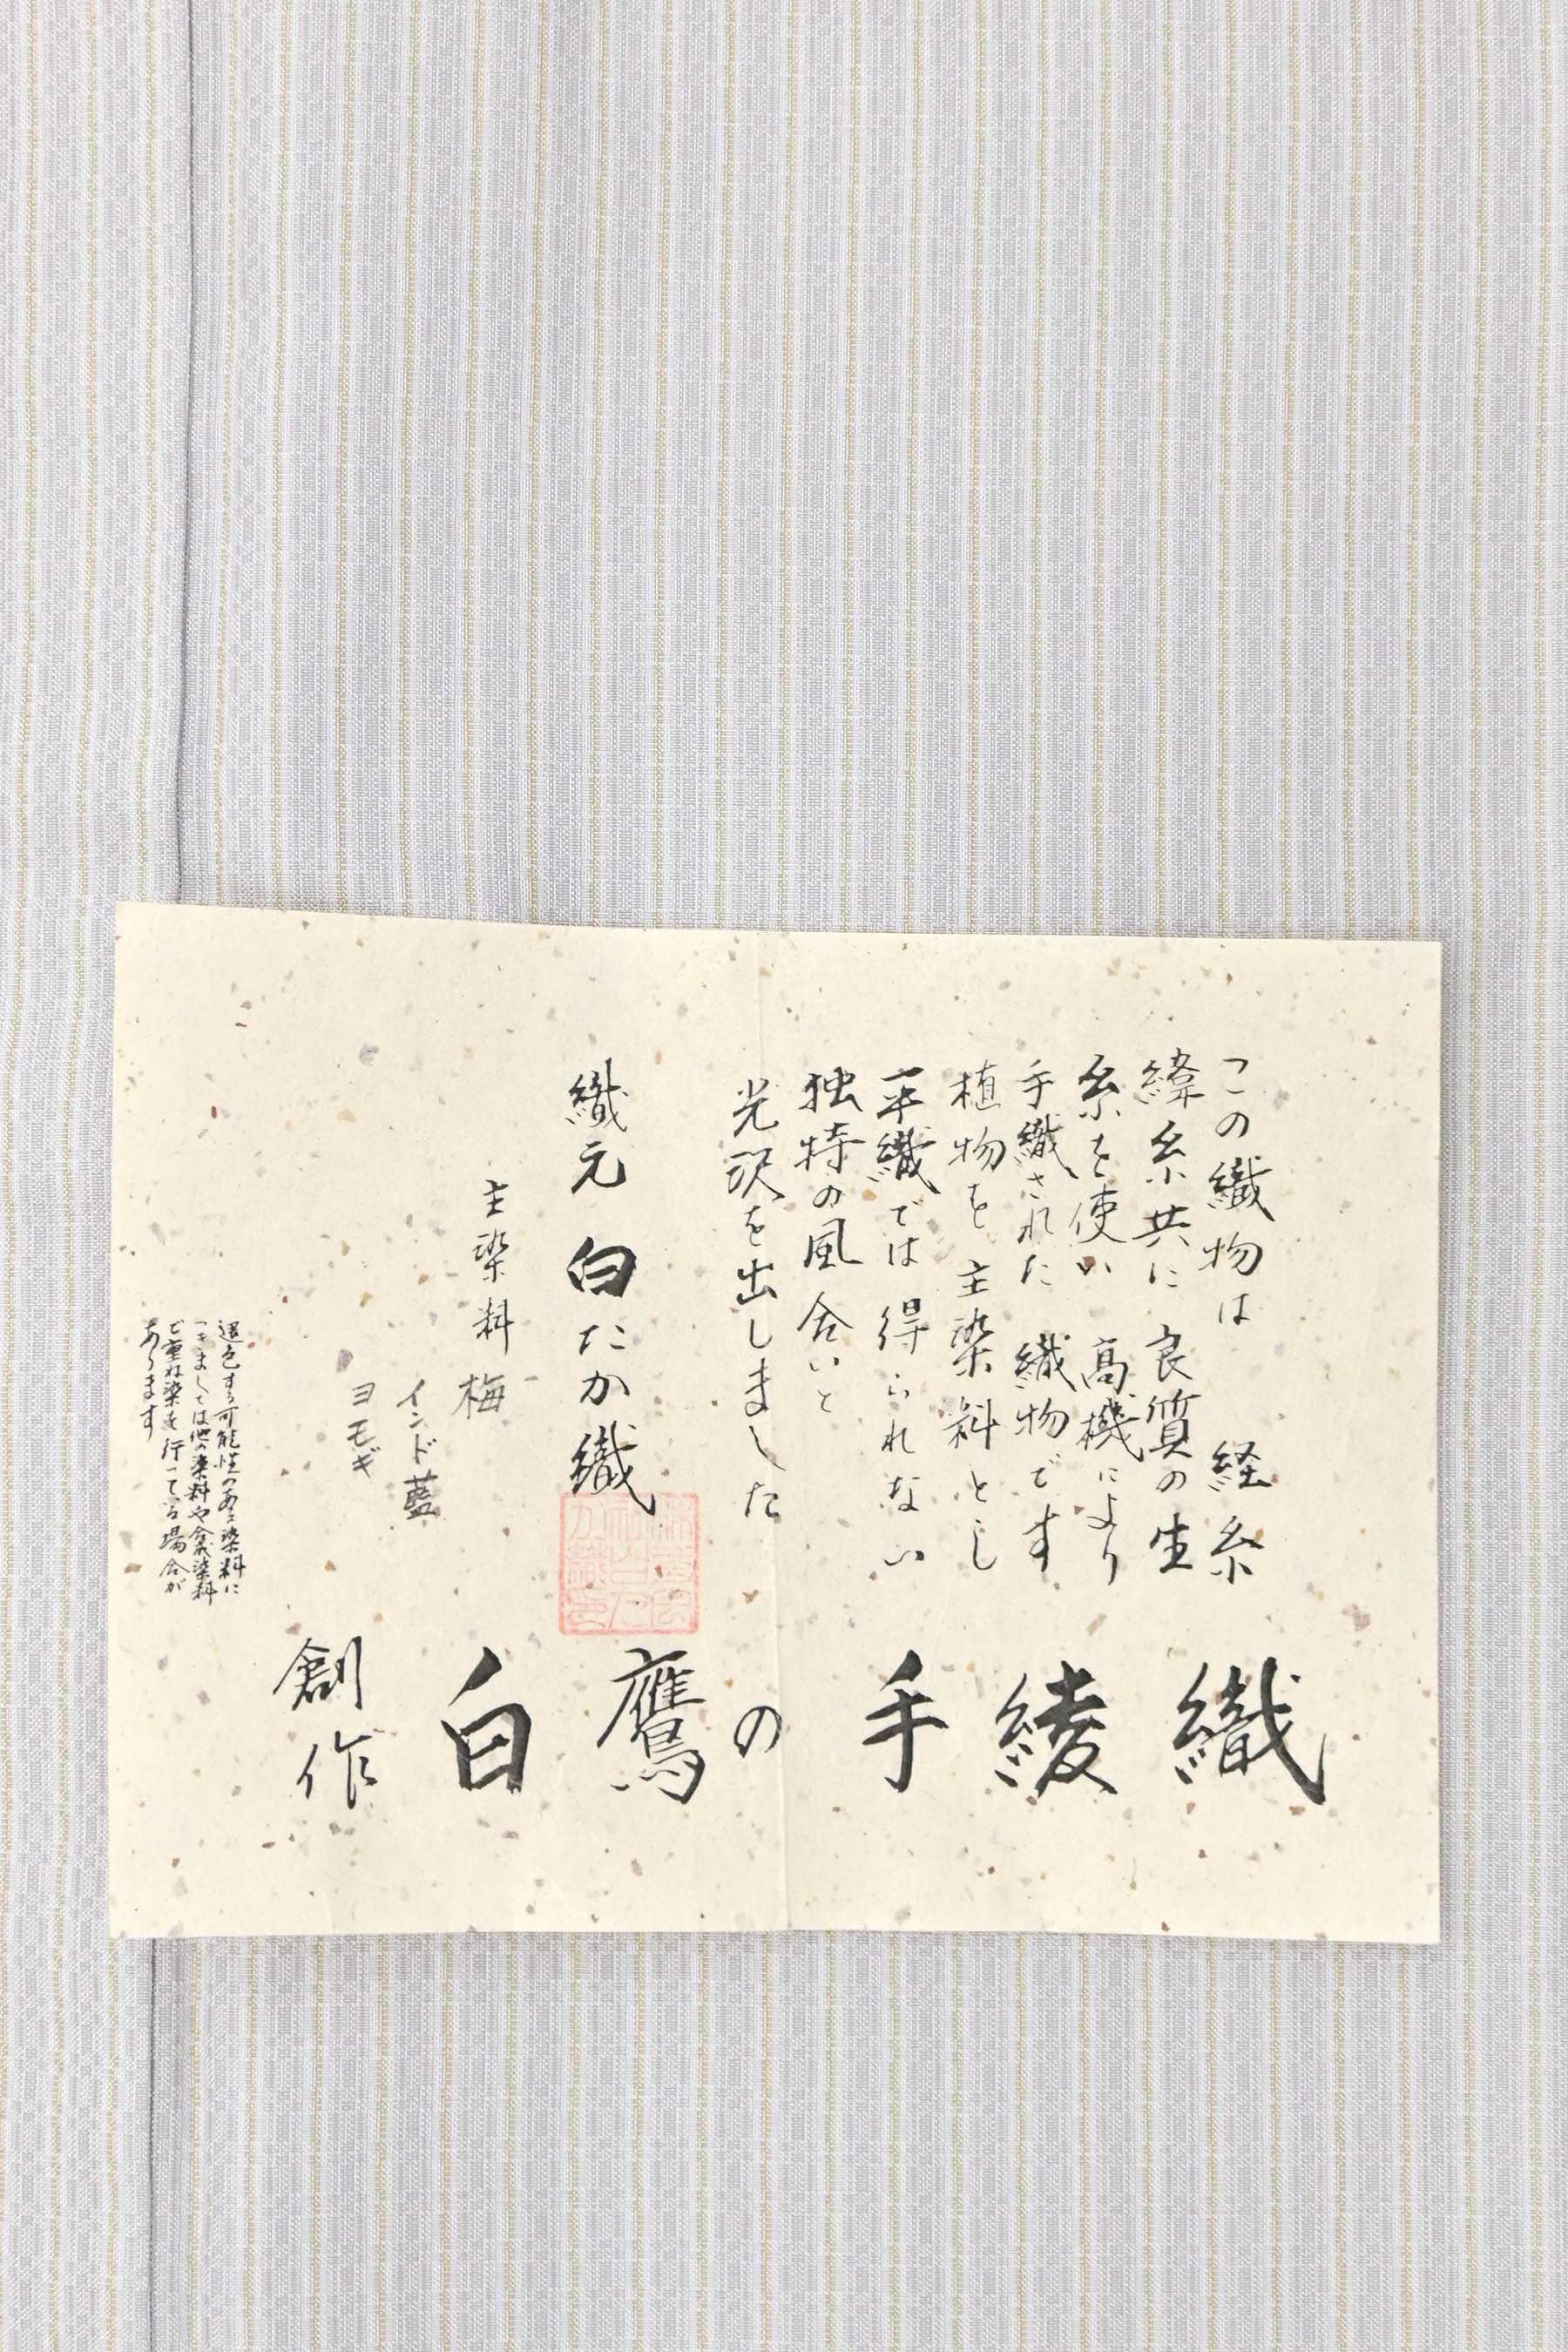 この織物は 経糸
緯糸共に 良質の生
糸を使い 高機により
手織された 織物です
植物を主染料とし
平織では得られない
独特の風合いと
光沢を出しました
織元 白たか織
主染料 梅
インド藍
ヨモギ
退色する可能性のある染料に
つきましては他の染料や合成染料
で重ね染を行っている場合が
あります
創作 白鷹の手綾織